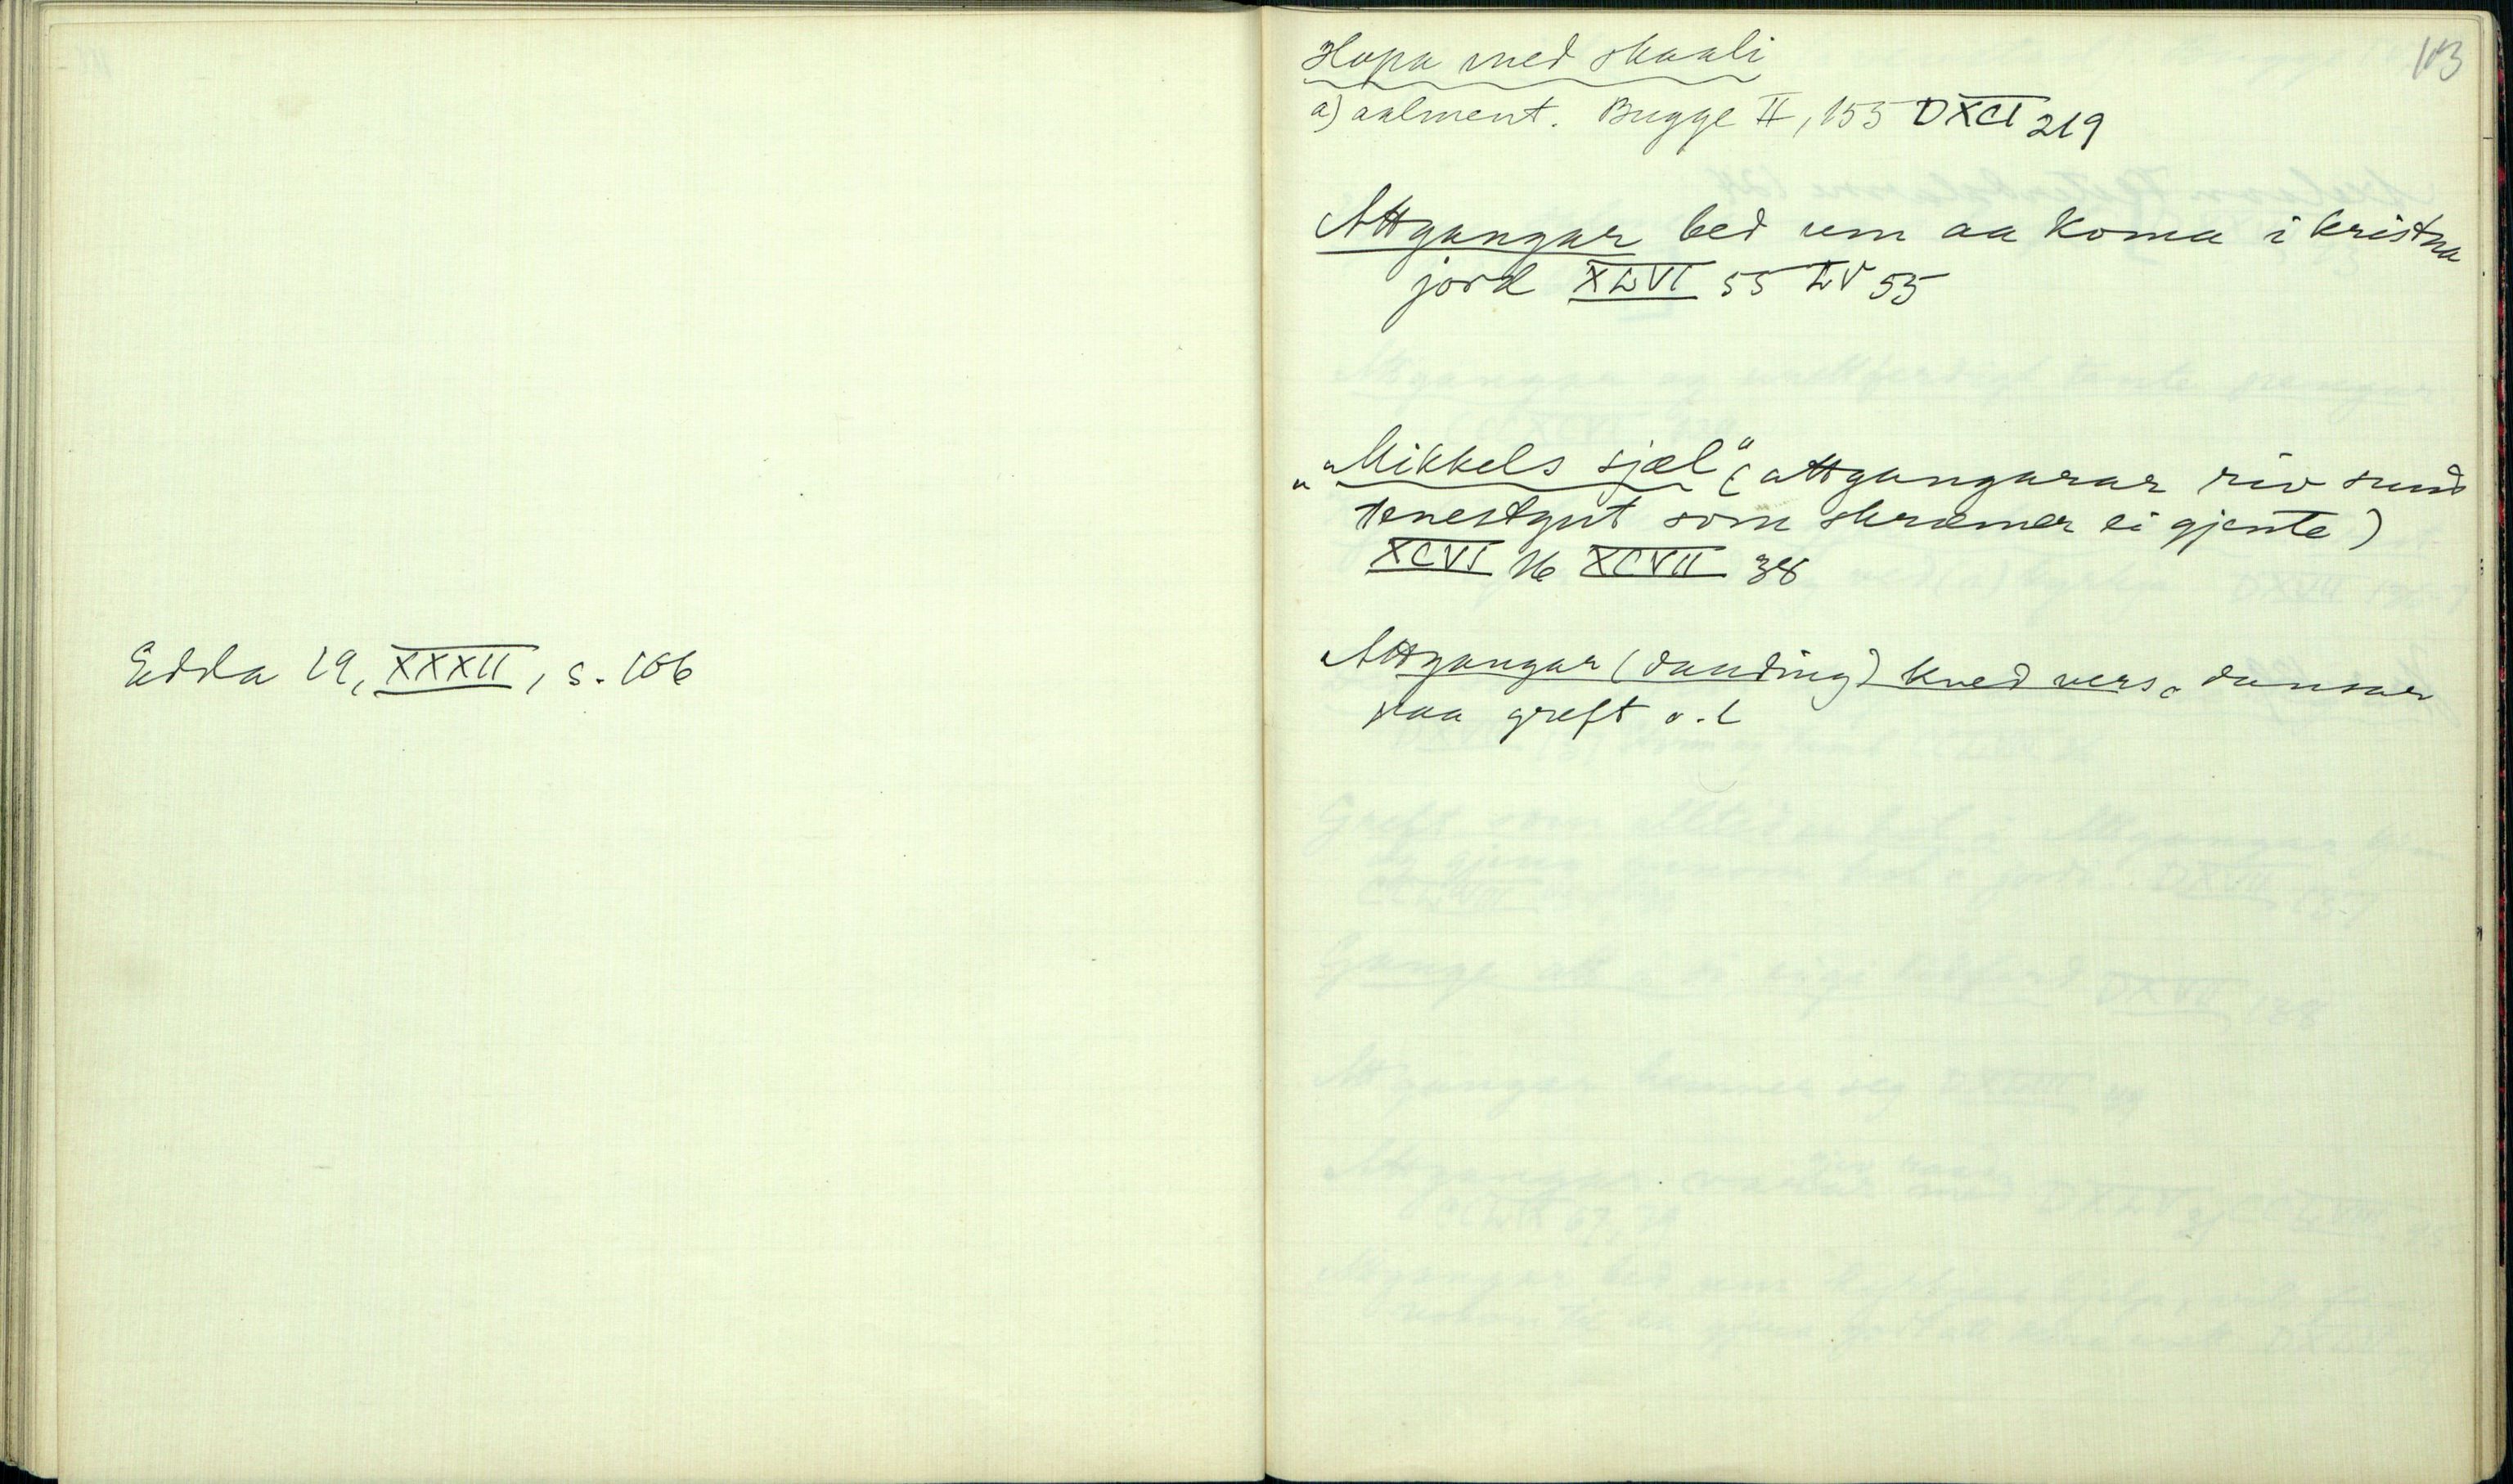 Edda 29, XXXII, s. 106
113
Hopa med skaali
a) aalment. Bugge II, 155 DXCI 219
Attgangar bed um aa koma i kristna
jord XLVI 55 LV 55
"Mikkels sjæl" (attgangarar riv sund
tenestgut som skræmer ei gjente)
XCVI 16 XCVII 38
Attgangar (dauding) kved vers, dansar
paa greft o.l